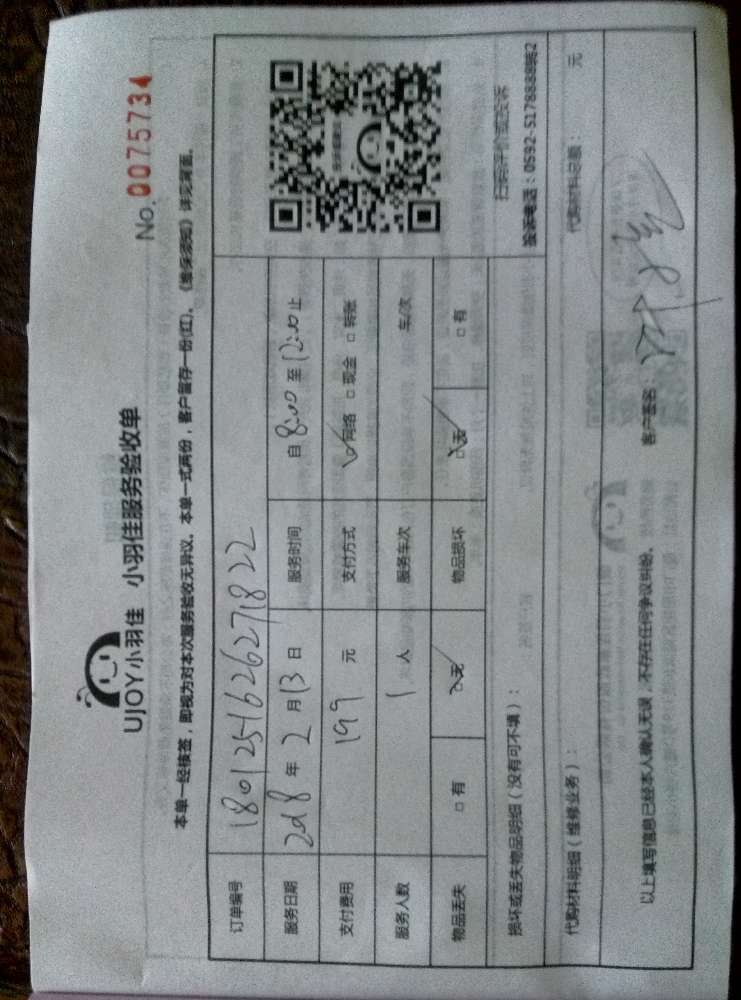 UJOY小羽佳 小羽佳服务验收单
No. 0075734
本单一经核签，即视为对本次服务验收无异议。本单一式两份，客户留存一份(红)。《维保须知》详见背面。
订单编号 180125162627182 2
服务日期 2018 年 2 月 13 日 服务时间 自 8:00 至 12:00 止
支付费用 199 元 支付方式 ☑网络 □现金 □转账
服务人数 1 人 服务车次 车/次
物品丢失 □有 ☑无 物品损坏 ☑无 □有
扫码评价或投诉
投诉电话：0592-5178888转2
损坏或丢失物品明细（没有可不填）：
代购材料明细（维修业务）： 代购材料总额： 元
以上填写信息已经本人确认无误，不存在任何争议纠纷。 客户签名：